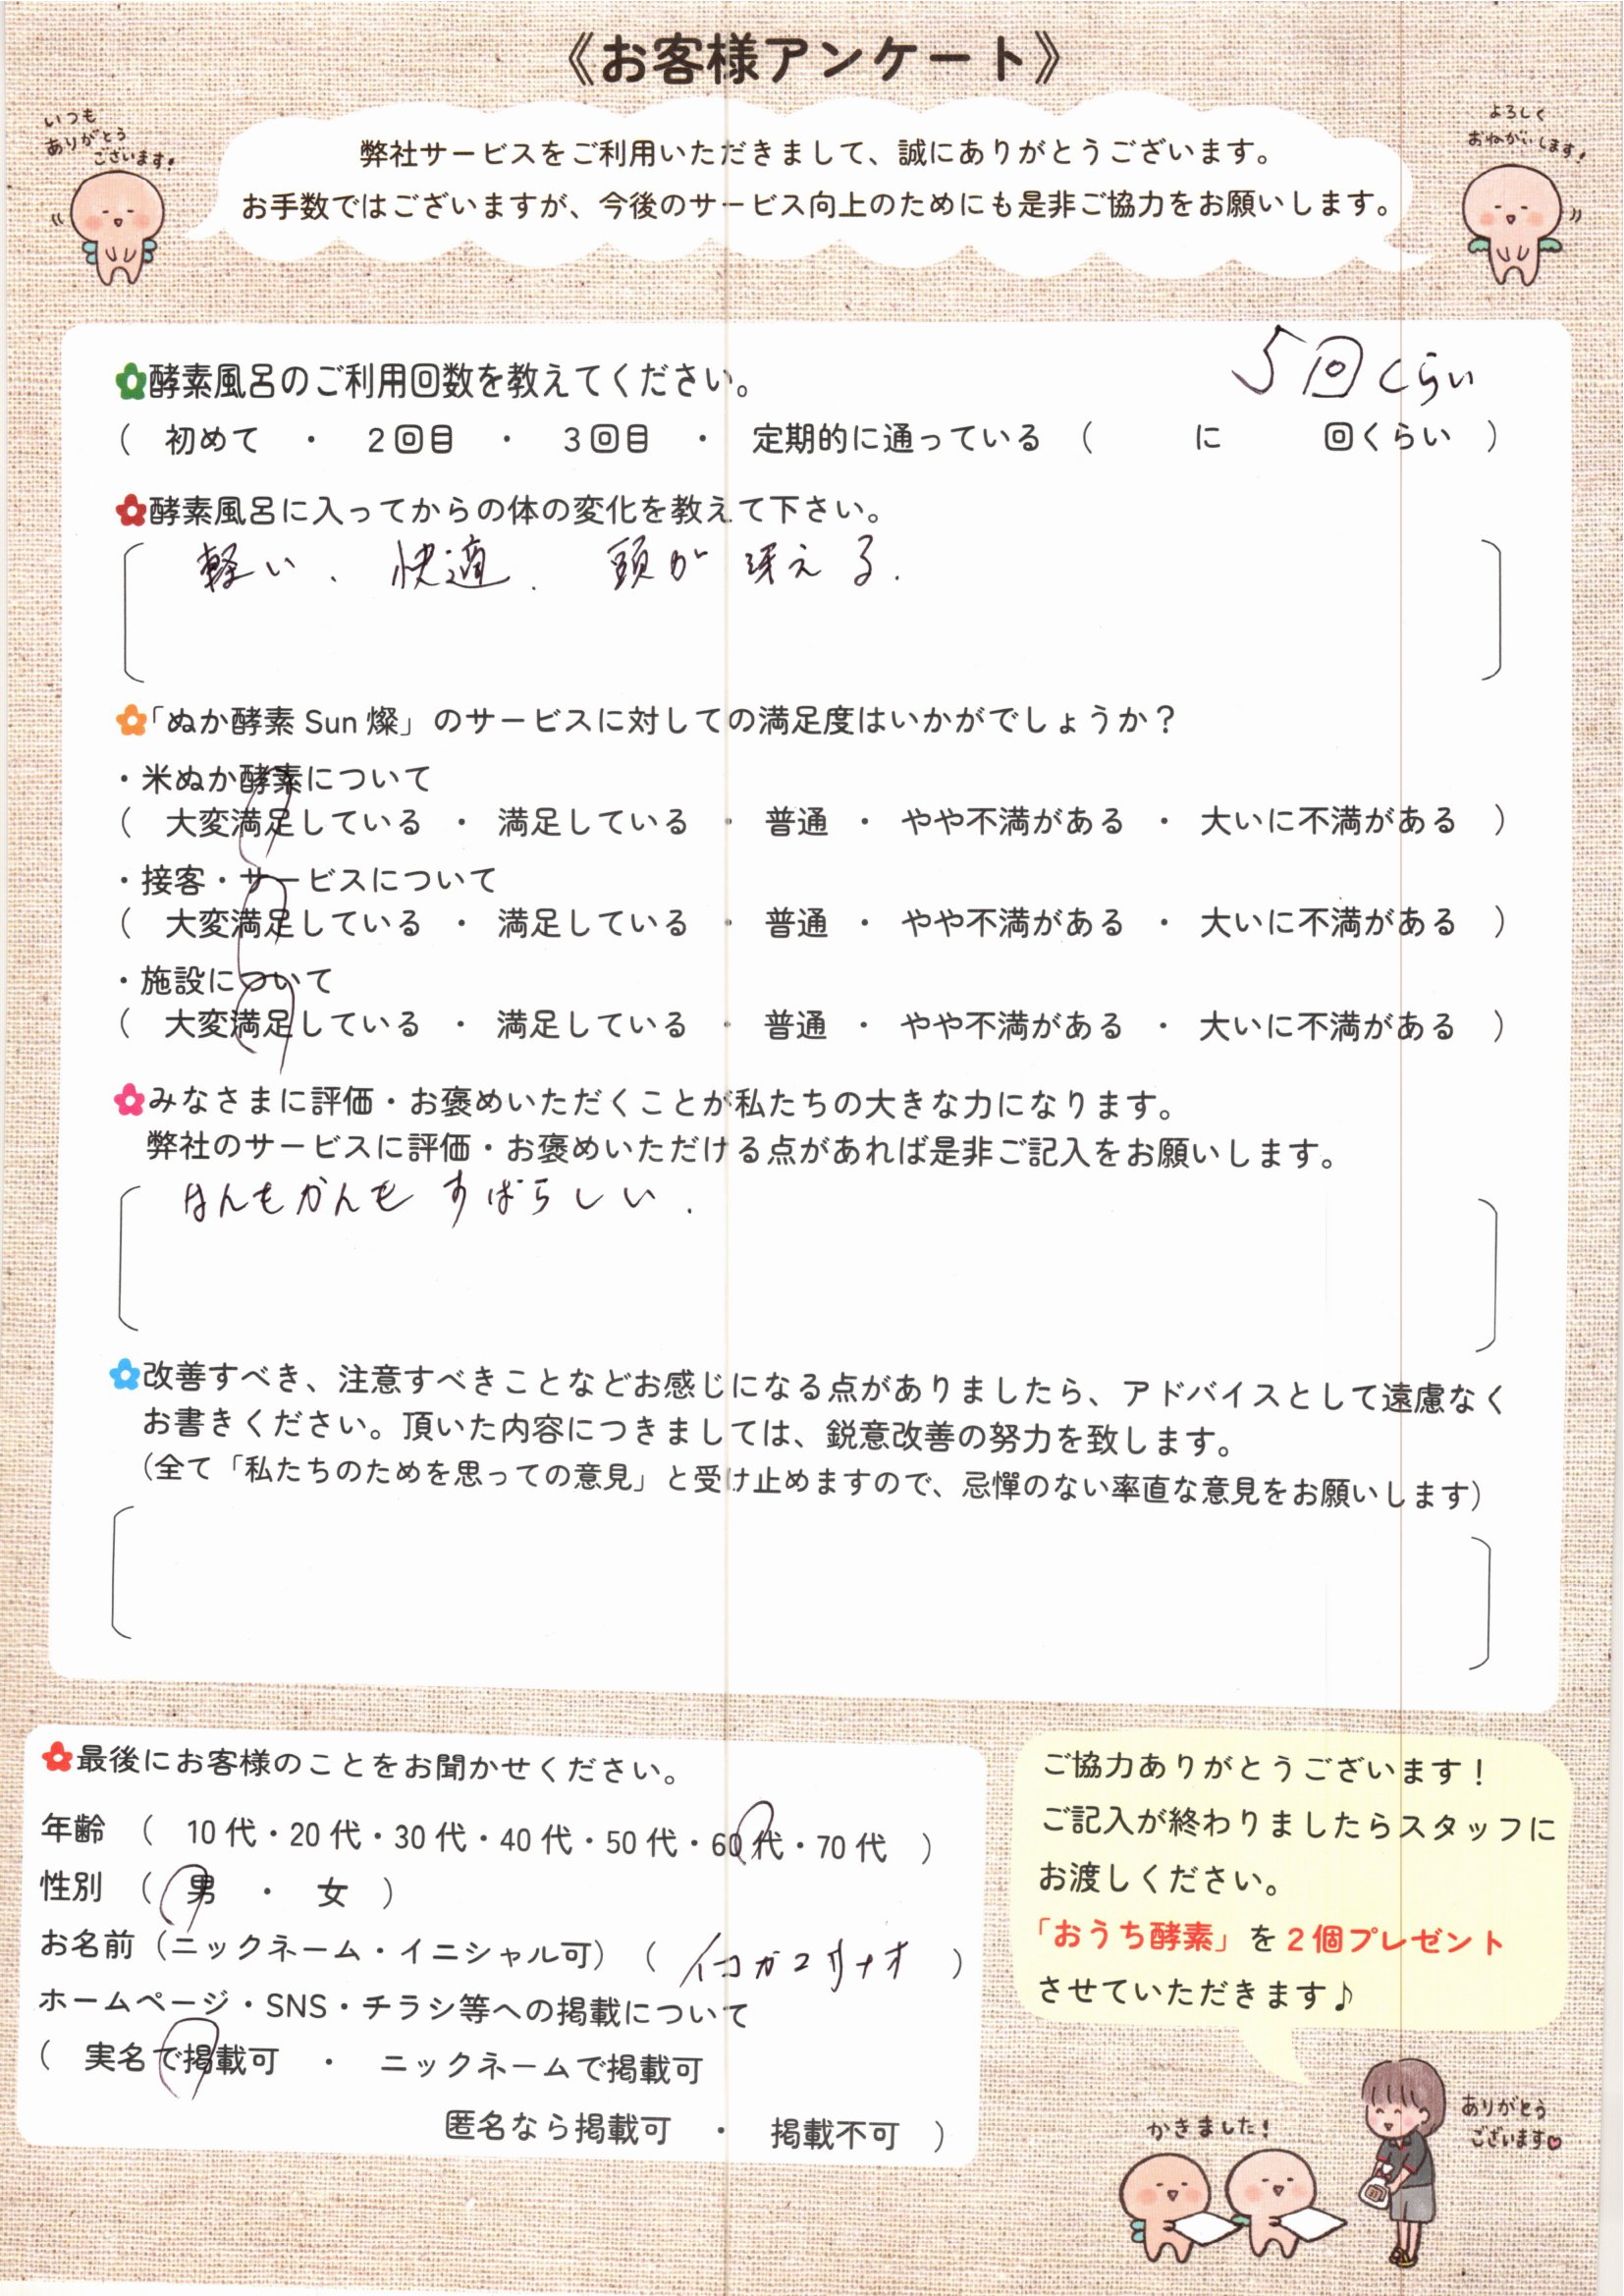 《お客様アンケート》
いつも
ありがとう
ございます!
よろしく
おねがいします!
弊社サービスをご利用いただきまして、誠にありがとうございます。
お手数ではございますが、今後のサービス向上のためにも是非ご協力をお願いします。
5回くらい
酵素風呂のご利用回数を教えてください。
( 初めて ・ 2回目 ・ 3回目 ・ 定期的に通っている ( に 回くらい )
酵素風呂に入ってからの体の変化を教えて下さい。
軽い、快適. 頭が冴える.
「ぬか酵素 Sun 燦」のサービスに対しての満足度はいかがでしょうか?
・米ぬか酵素について
( 大変満足している ・ 満足している ・ 普通 ・ やや不満がある ・ 大いに不満がある )
・接客・サービスについて
( 大変満足している ・ 満足している ・ 普通 ・ やや不満がある ・ 大いに不満がある )
・施設について
( 大変満足している ・ 満足している ・ 普通 ・ やや不満がある ・ 大いに不満がある )
みなさまに評価・お褒めいただくことが私たちの大きな力になります。
弊社のサービスに評価・お褒めいただける点があれば是非ご記入をお願いします。
なんもかんも すばらしい.
改善すべき、注意すべきことなどお感じになる点がありましたら、アドバイスとして遠慮なく
お書きください。頂いた内容につきましては、鋭意改善の努力を致します。
(全て「私たちのためを思っての意見」と受け止めますので、忌憚のない率直な意見をお願いします)
最後にお客様のことをお聞かせください。
年齢 ( 10代・20代・30代・40代・50代・60代・70代 )
性別 ( 男 ・ 女 )
お名前(ニックネーム・イニシャル可)( )
ホームページ・SNS・チラシ等への掲載について
( 実名で掲載可 ・ ニックネームで掲載可
匿名なら掲載可 ・ 掲載不可 )
ご協力ありがとうございます!
ご記入が終わりましたらスタッフに
お渡しください。
「おうち酵素」を2個プレゼント
させていただきます♪
かきました!
ありがとう
ございます♥